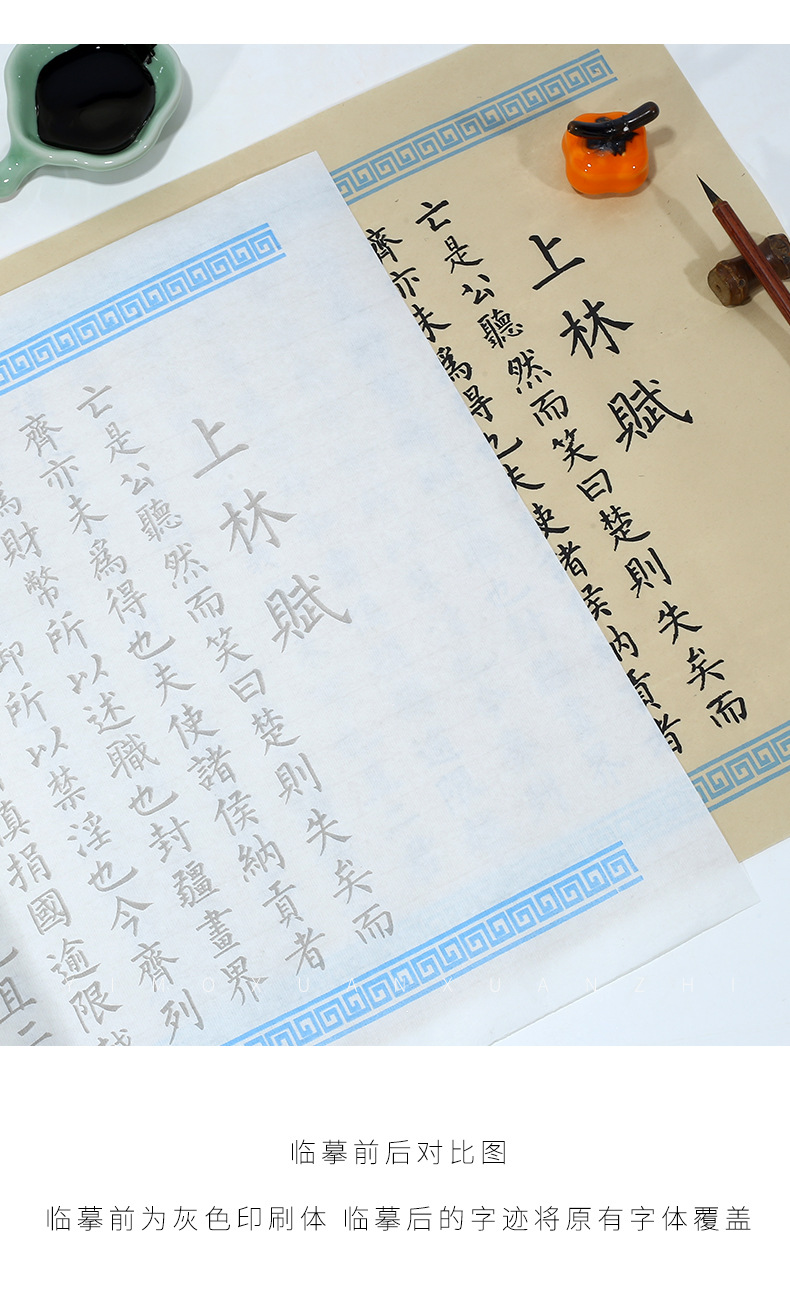 上林賦
亡是公聽然而笑曰楚則失矣而
齊亦未爲得也夫使諸侯納貢者
上林賦
亡是公聽然而笑曰楚則失矣而
齊亦未爲得也夫使諸侯納貢者
爲財幣所以述職也封疆畫界
所以禁淫也今齊列
慎捐國逾限越
且二
YIMOXUANXUANZHI
临摹前后对比图
临摹前为灰色印刷体 临摹后的字迹将原有字体覆盖